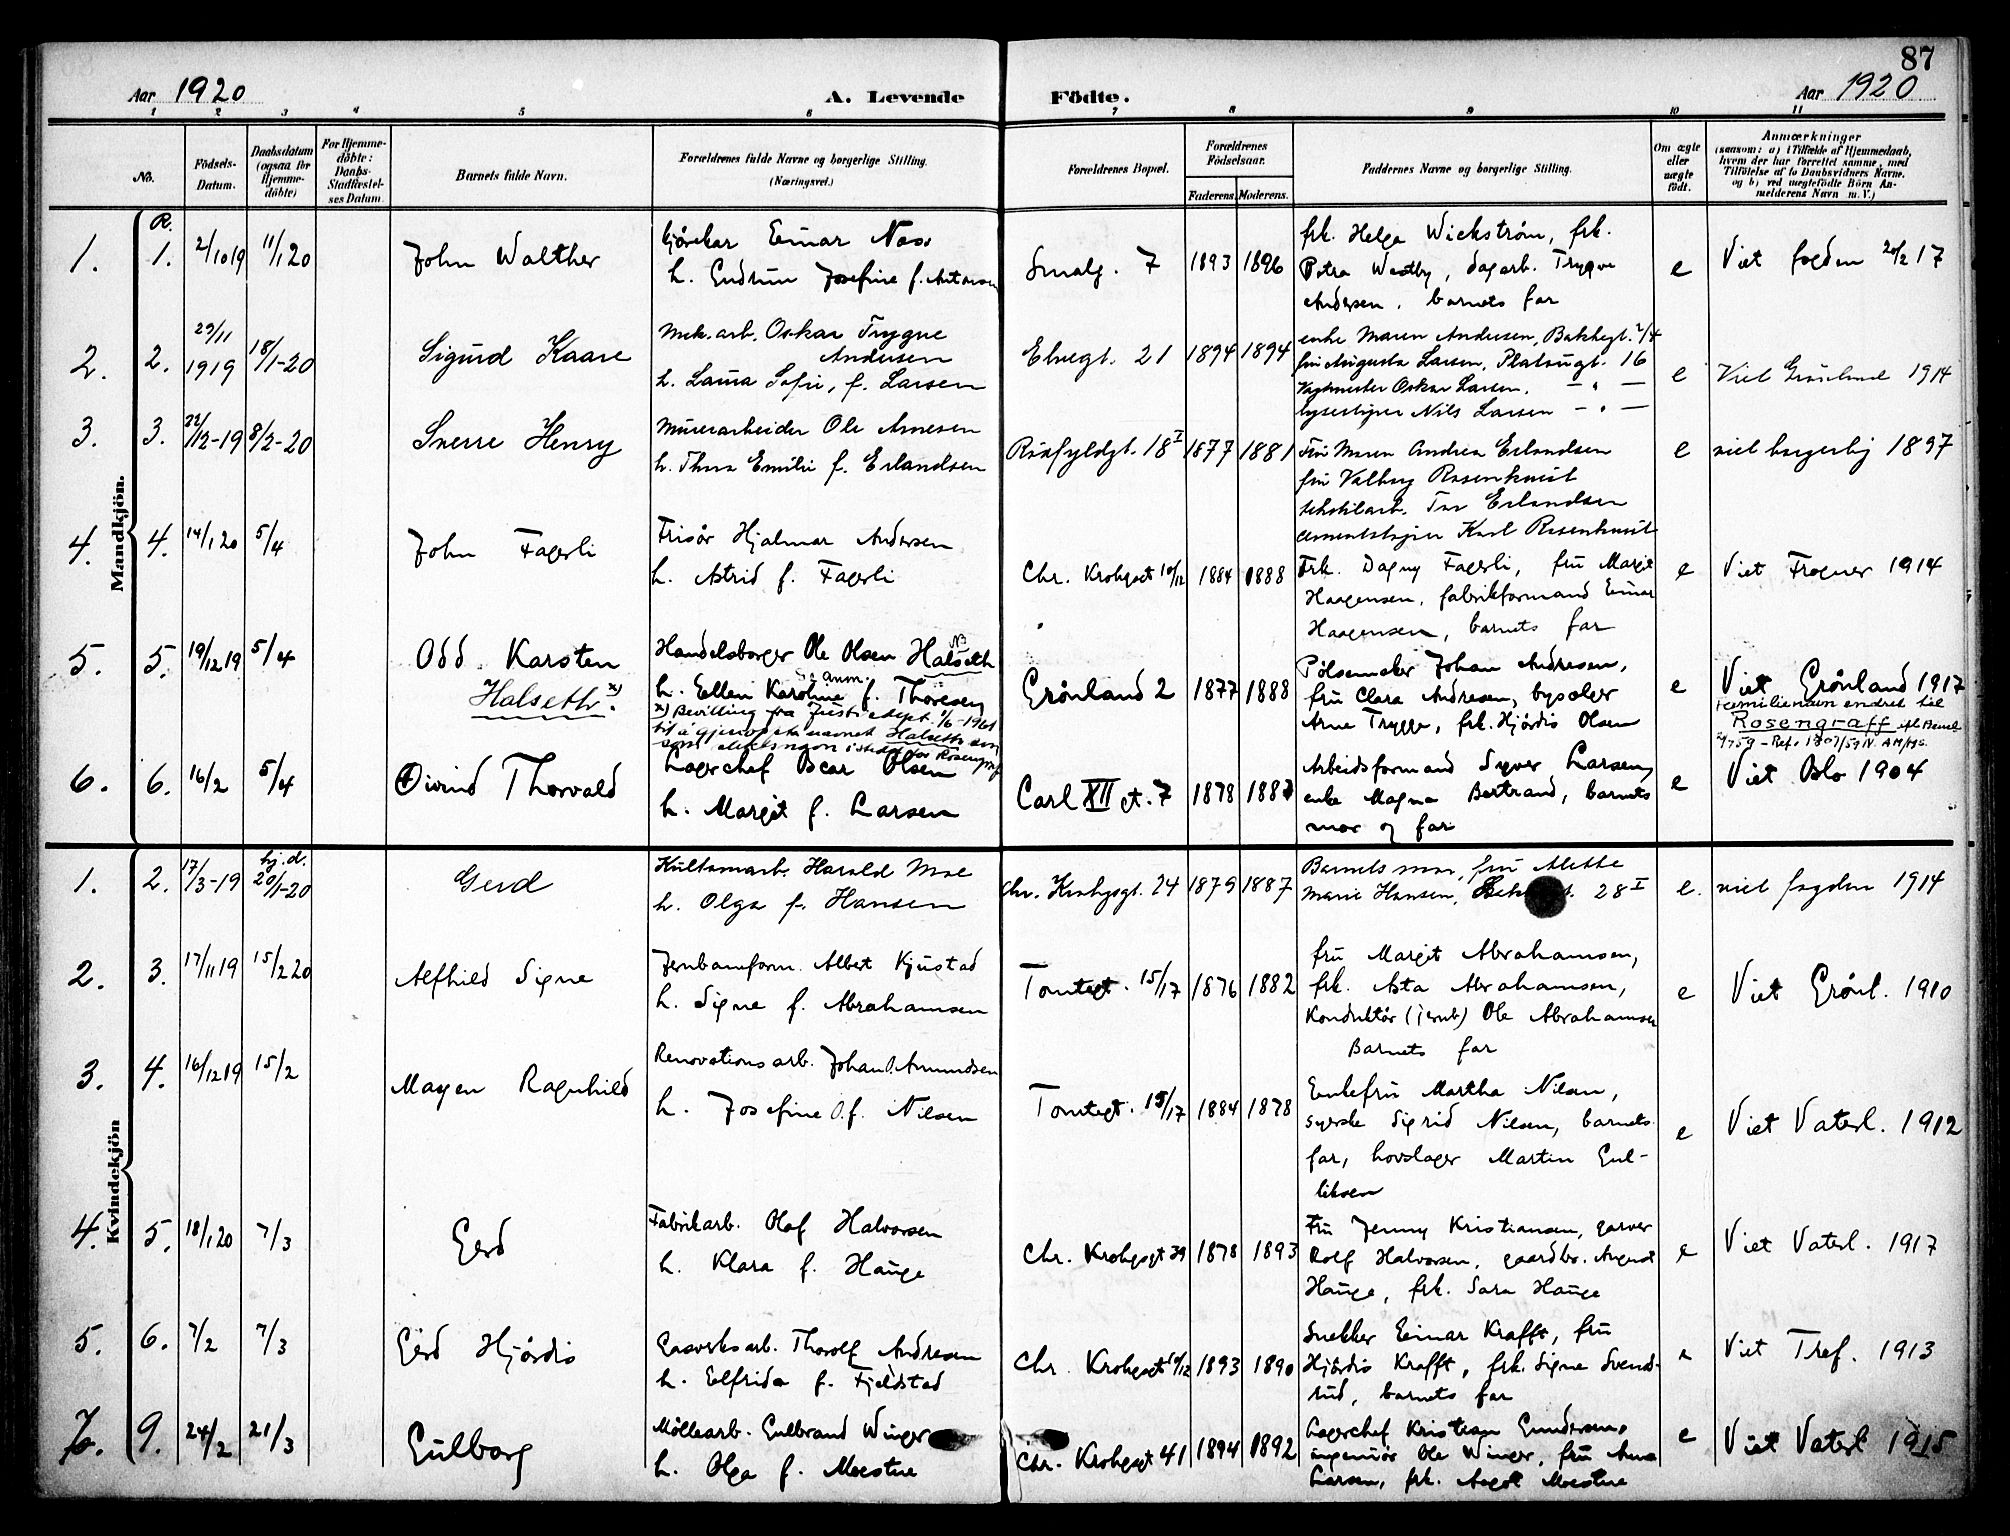 87
Aar 1920
A. Levende
Födte.
Aar 1920
1 2 3 4 5 6 7 8 9 10 11
No.
Födsels-
Datum.
Daabsdatum
(ogsaa for
Hjemme-
döbte)
For Hjemme-
döbte:
Daabs-
Stadfæstel-
ses Datum.
Barnets fulde Navn.
Forældrenes fulde Navne og borgerlige Stilling.
(Næringsvei.)
Forældrenes Bopæl.
Forældrenes
Födselsaar.
Faderens. Moderens.
Faddernes Navne og borgerlige Stilling.
Om ægte
eller
uægte
födt.
Anmærkninger
(saasom: a) i Tilfælde af Hjemmedaab,
hvem der har forrettet samme, med
Tilföielse af to Daabsvidners Navne.
og b) ved uægtefödte Börn An-
melderens Navn m. V.)
Mandkjön.
R.
1. 1. 2/10 19 11/1 20 John Walther
Einar Næss
h. Gudrun Josefine f. Antonsen
Smalg. 7 1893 1896
frk. Helga Wickstrøm, frk.
Petra Westby, dagarb. Trygve
Andersen, barnets far
e Viet fogden 20/2 17
2. 2. 29/11 1919 18/1-20 Sigurd Kaare
Mek. arb. Oskar Trygve
Andersen
h. Laura Sofie, f. Larsen
Elvegt. 21 1894 1894
enke Maren Andersen, Bakkegt. 2/4
fru Augusta Larsen, Platougt. 16
Oskar Larsen. — " —
Nils Larsen — " —
e Viet Grønland 1914
3. 3. 22/12-19 8/2-20 Sverre Henry
Murerarbeider Ole Arnesen
h. Thora Emilie f. Erlandsen
Rubfyldgt. 18 I 1877 1881
Fru Maren Andrea Erlandsen
fru Valborg Rosenkvist
tekstilarb. Tor Erlandsen
cementstøper Karl Rosenkvist
e viet borgerlig 1897
4. 4. 14/1 20 5/4 John Fagerli
Frisør Hjalmar Andersen
h. Astrid f. Fagerli
Chr. Krohgsgt 10/12 1884 1888
Frk. Dagny Fagerli, fru Margit
Haagensen, fabrikformand Einar
Haagensen, barnets far
e Viet Frogner 1914
5. 5. 19/12 19 5/4 Odd Karsten
Halseth x).
Handelsborger Ole Olsen Halseth
NB
h. Ellen Karoline f. Thoresen
x) Bevilling fra Justisdept. 1/6-1961
til å gjenoppta navnet Halseth som
som slektsnavn istedet for Rosengraff
Grønland 2 1877 1888
Pølsemaker Johan Andresen,
fru Clara Andresen, byseler
Arne Trygge, frk. Hjørdis Olsen
e Viet Grønland 1917
Familienavn endret til
Rosengraff
6. 6. 16/2 5/4 Øivind Thorvald
Lagerchef Oscar Olsen
h. Margit f. Larsen
Carl XII gt. 7 1878 1887
Arbeidsformand Syver Larsen,
enke Magna Bertrand, barnets
mor og far
e Viet Oslo 1904
Kvindekjön
1. 2. 17/3-19 hj.d. 20/1-20 Gerd
Harald Moe
h. Olga f. Hansen
Chr. Krohgsgt. 24 1879 1887
Barnets mor, fru Mette
Marie Hansen, 28 I
e. viet fogden 1914
2. 3. 17/11 19 15/2 20 Alfhild Signe
Jernbaneform. Albert Kjustad
h. Signe f. Abrahamsen
Tomtegt. 15/17 1876 1882
fru Margit Abrahamsen,
frk. Asta Abrahamsen,
Konduktør (jernb) Ole Abrahamsen
Barnets far
e Viet Grønl. 1910
3. 4. 16/12 19 15/2 Magen Ragnhild
Renovationsarb. Johan O. Amundsen
h. Josefine O. f. Nilsen
Tomtegt. 15/17 1884 1878
Enkefru Martha Nilsen,
syerske Sigrid Nilsen, barnets
far, hovslager Martin Gul-
liksen
e Viet Vaterl. 1912
4. 5. 18/1 20 7/3 Gerd
Fabrikarb. Olaf Halvorsen
h. Klara f. Hauge
Chr. Krohgsgt 39 1878 1893
Fru Jenny Kristiansen, garver
Rolf Halvorsen, gaardbr. August
Hauge, frk. Sara Hauge
e Viet Vaterl. 1917
5. 6. 7/2 7/3 Gerd Hjørdis
Gasverksarb. Thorolf Andresen
h. Elfrida f. Fjeldstad
Chr. Krohgsgt 10/12 1893 1890
Snekker Einar Krafft, fru
Hjørdis Krafft, frk. Signe Svend-
rud, barnets far
e Viet Tref. 1913
7. 9. 24/2 21/3 Gulborg
Møllearb. Gulbrand Winger
h. Olga f. Moestue
Chr. Krohgsgt 41 1894 1892
Lagerchef Kristian Gundersen,
ingeniør Ole Winger, fru Anna
Larsen, frk. Aagot Moestue
e Viet Vaterl 1915